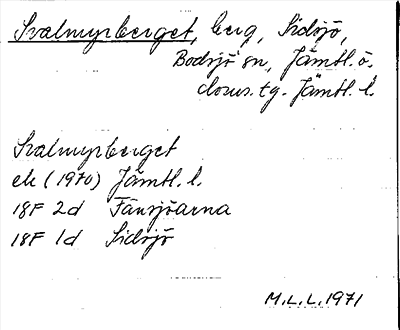 Svalmyrberget, berg, Sidsjö,
Bodsjö sn, Jämtl. ö.
doms. tg. Jämtl. l.
Svalmyrberget
ek (1970) Jämtl. l.
18F 2d Fänsjöarna
18F 1d Sidsjö
M.L.L. 1971